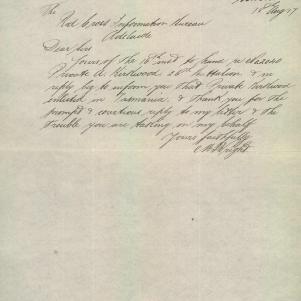 The
18 Aug 17
Red Cross Information Bureau
Adelaide
Dear Sir
Yours of the 16th inst to hand re
Private A. Kirkwood Battalion. & in
reply beg to inform you that Private Kirkwood
enlisted in Tasmania. & thank you for the
prompt & courteous reply to my letter & the
trouble you are taking on my behalf
Yours faithfully
Wright